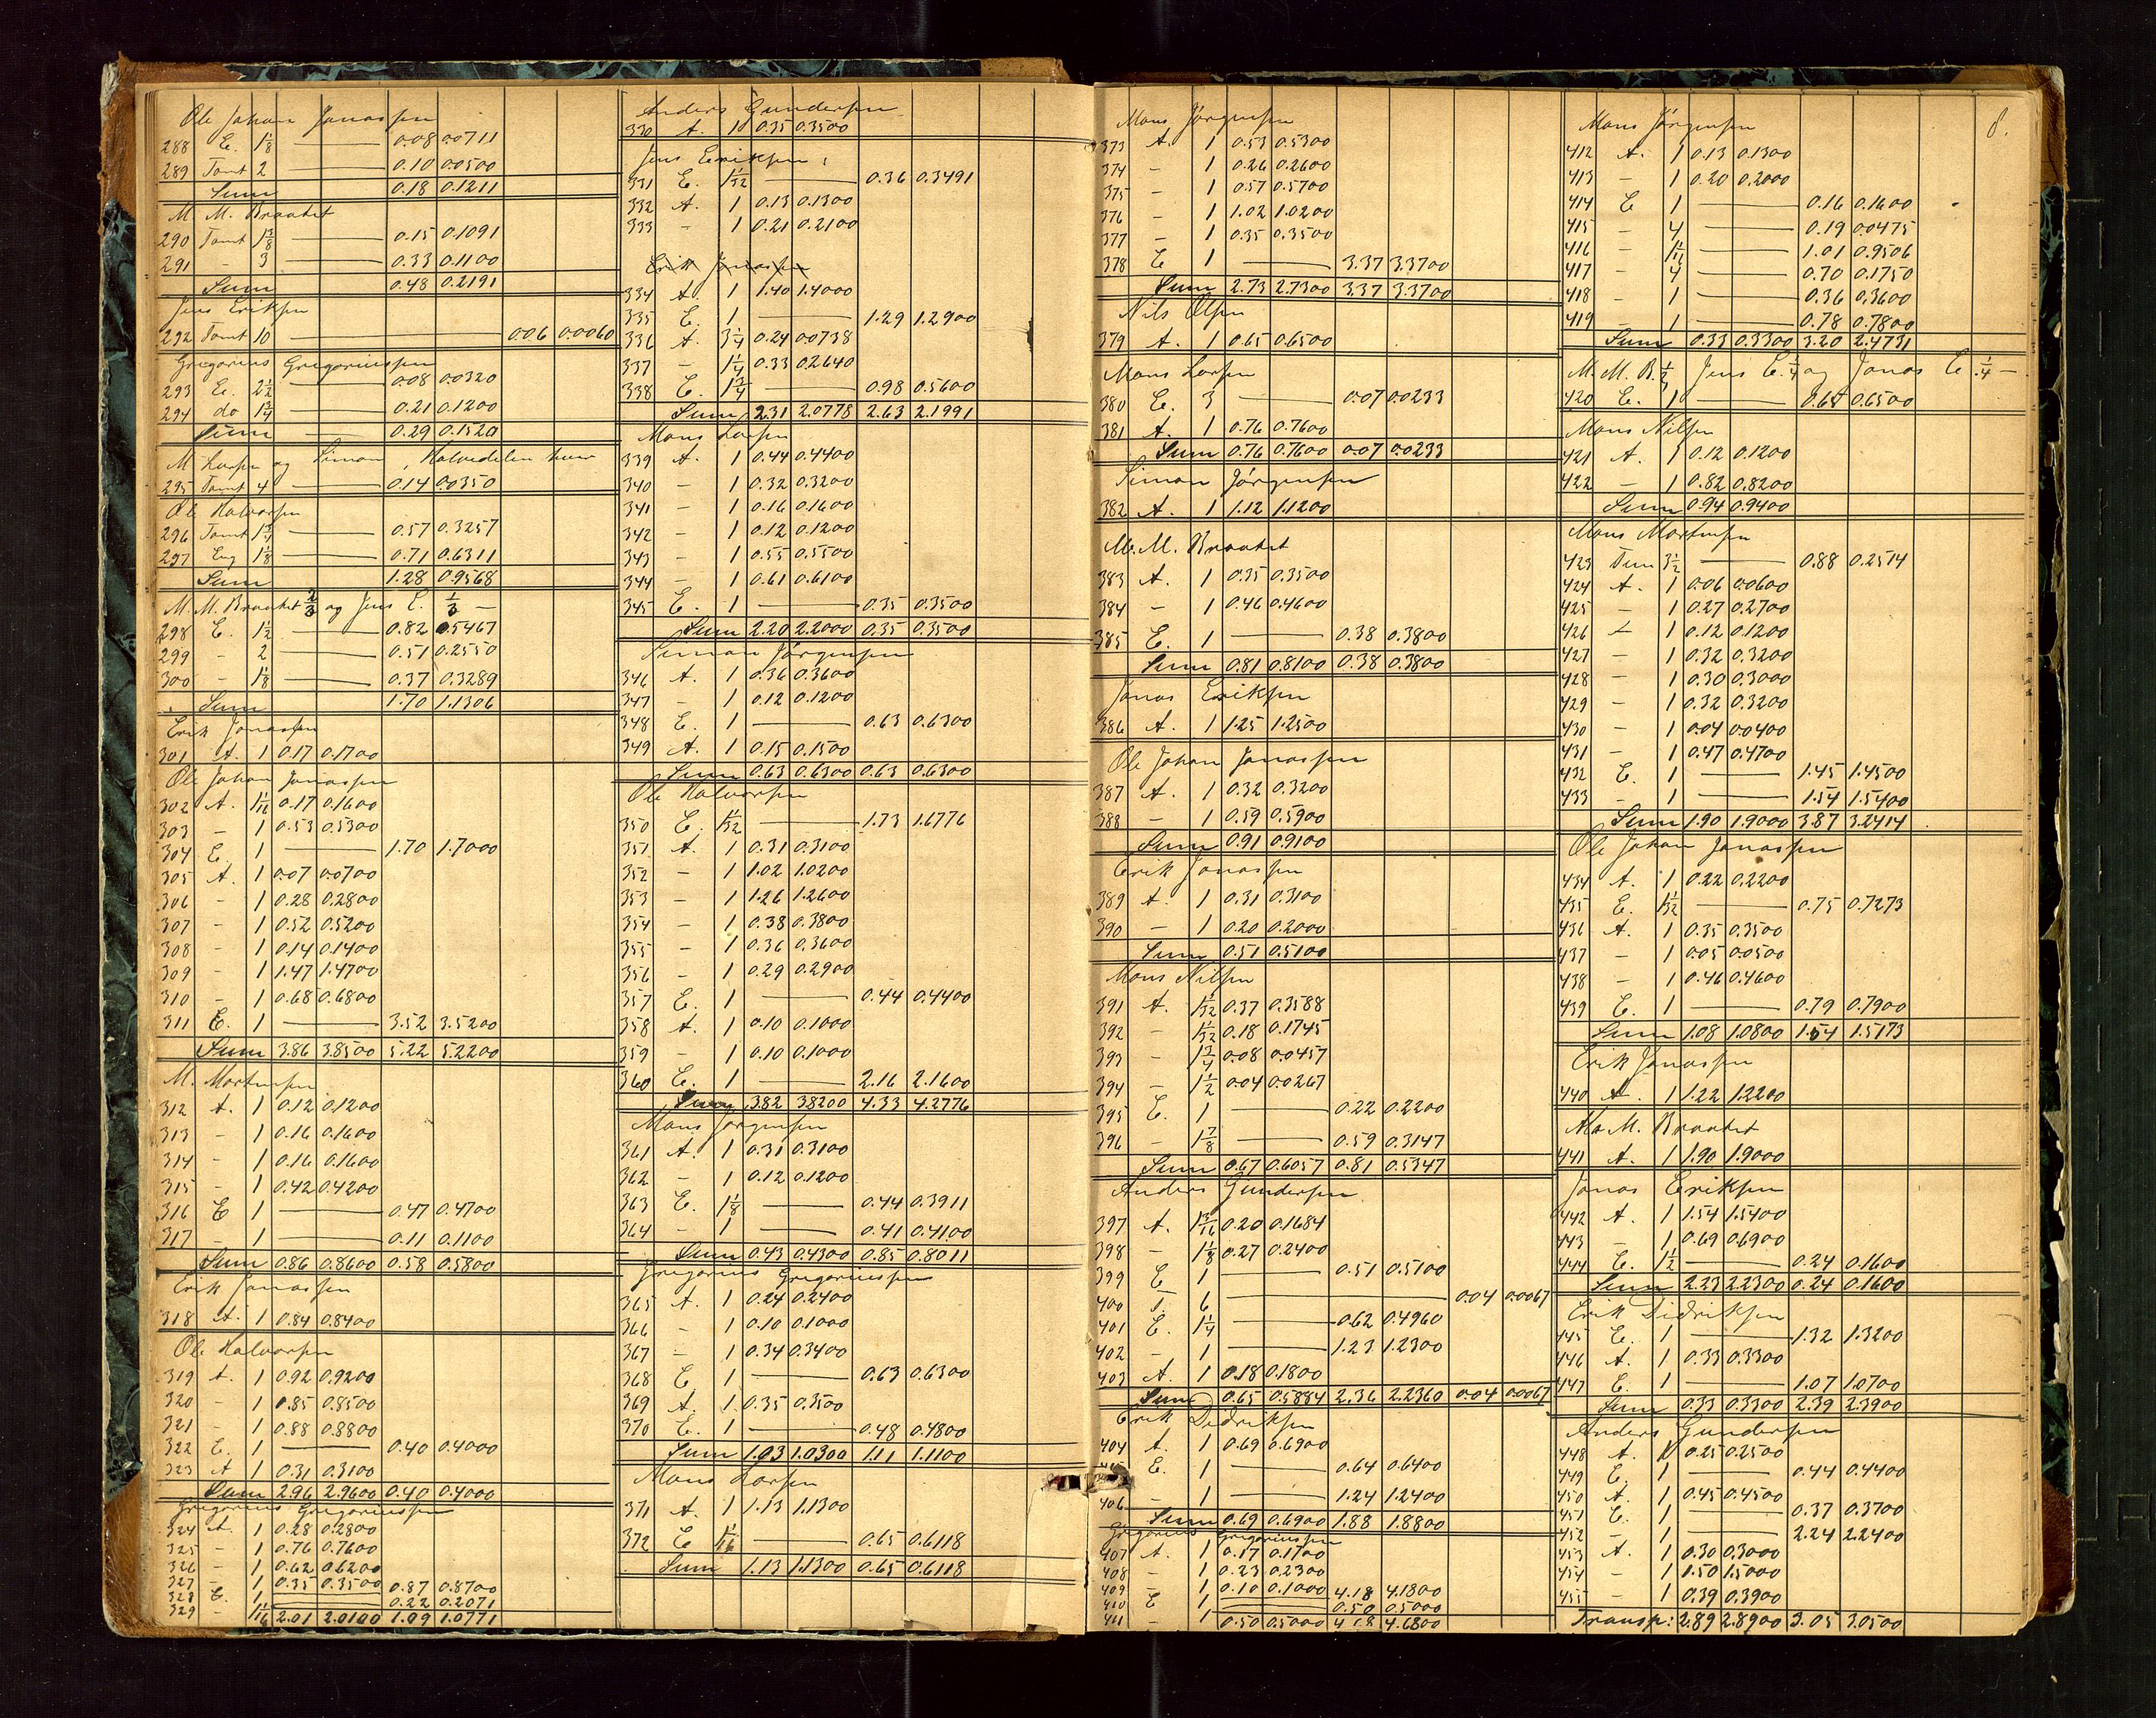 Ole Johan Jonassen
288 E. 1 1/8 — 0.08 0.0711
289 Tomt 2 — 0.10 0.0500
Sum 0.18 0.1211
M. M. Braatet
290 Tomt 1 3/8 — 0.15 0.1091
291 - 3 — 0.33 0.1100
Sum 0.48 0.2191
Jens Eriksen
292 Tomt 10 — 0.06 0.0060
Gregorius Gregoriussen
293 E. 2 1/2 — 0.08 0.0320
294 do 1 3/4 — 0.21 0.1200
Sum — 0.29 0.1520
M. Larsen og Simon, Halvedelen hver
295 Tomt 4 — 0.14 0.0350
Ole Halvorsen
296 Tomt 1 3/4 — 0.57 0.3257
297 Eng 1 1/8 — 0.71 0.6311
Sum 1.28 0.9568
M. M. Braatet 2/3 og Jens E. 1/3 —
298 E. 1 1/2 — 0.82 0.5467
299 - 2 — 0.51 0.2550
300 - 1 1/8 — 0.37 0.3289
Sum 1.70 1.1306
Erik Jonassen
301 A. 1 0.17 0.1700
Ole Johan Jonassen
302 A. 1 1/16 0.17 0.1600
303 - 1 0.53 0.5300
304 E. 1 — 1.70 1.7000
305 A. 1 0.07 0.0700
306 - 1 0.28 0.2800
307 - 1 0.52 0.5200
308 - 1 0.14 0.1400
309 - 1 1.47 1.4700
310 - 1 0.68 0.6800
311 E. 1 — 3.52 3.5200
Sum 3.86 3.8500 5.22 5.2200
M. Mortensen
312 A. 1 0.12 0.1200
313 - 1 0.16 0.1600
314 - 1 0.16 0.1600
315 - 1 0.42 0.4200
316 E 1 — 0.47 0.4700
317 - 1 — 0.11 0.1100
Sum 0.86 0.8600 0.58 0.5800
Erik Jonassen
318 A. 1 0.84 0.8400
Ole Halvorsen
319 A. 1 0.92 0.9200
320 - 1 0.85 0.8500
321 - 1 0.88 0.8800
322 E. 1 — 0.40 0.4000
323 A 1 0.31 0.3100
Sum 2.96 2.9600 0.40 0.4000
Gregorius Gregoriussen
324 A. 1 0.28 0.2800
325 - 1 0.76 0.7600
326 - 1 0.62 0.6200
327 - 1 0.35 0.3500
328 E. 1 — 0.87 0.8700
329 - 1 1/16 — 0.22 0.2071
2.01 2.0100 1.09 1.0771
Anders Gundersen
330 A. 1 0.35 0.3500
Jens Eriksen
331 E. 1 1/32 — 0.36 0.3491
332 A. 1 0.13 0.1300
333 - 1 0.21 0.2100
Erik Jonassen
334 A. 1 1.40 1.4000
335 E. 1 — 1.29 1.2900
336 A. 3 1/4 0.24 0.0738
337 - 1 1/4 0.33 0.2640
338 E. 1 3/4 — 0.98 0.5600
Sum 2.31 2.0778 2.63 2.1991
Mons Larsen
339 A. 1 0.44 0.4400
340 - 1 0.32 0.3200
341 - 1 0.16 0.1600
342 - 1 0.12 0.1200
343 - 1 0.55 0.5500
344 - 1 0.61 0.6100
345 E. 1 — 0.35 0.3500
Sum 2.20 2.2000 0.35 0.3500
Simon Jörgensen
346 A. 1 0.36 0.3600
347 - 1 0.12 0.1200
348 E. 1 — 0.63 0.6300
349 A. 1 0.15 0.1500
Sum 0.63 0.6300 0.63 0.6300
Ole Halvorsen
350 E. 1 1/32 — 1.73 1.6776
351 A. 1 0.31 0.3100
352 - 1 1.02 1.0200
353 - 1 1.26 1.2600
354 - 1 0.38 0.3800
355 - 1 0.36 0.3600
356 - 1 0.29 0.2900
357 E. 1 — 0.44 0.4400
358 A. 1 0.10 0.1000
359 - 1 0.10 0.1000
360 E. 1 — 2.16 2.1600
Sum 3.82 3.8200 4.33 4.2776
Mons Jörgensen
361 A. 1 0.31 0.3100
362 - 1 0.12 0.1200
363 E. 1 1/8 — 0.44 0.3911
364 - 1 — 0.41 0.4100
Sum 0.43 0.4300 0.85 0.8011
Gregorius Gregoriussen
365 A. 1 0.24 0.2400
366 - 1 0.10 0.1000
367 - 1 0.34 0.3400
368 E 1 — 0.63 0.6300
369 A. 1 0.35 0.3500
370 E. 1 — 0.48 0.4800
Sum 1.03 1.0300 1.11 1.1100
Mons Larsen
371 A. 1 1.13 1.1300
372 E 1 1/16 — 0.65 0.6118
Sum 1.13 1.1300 0.65 0.6118
Mons Jörgensen
373 A. 1 0.53 0.5300
374 - 1 0.26 0.2600
375 - 1 0.57 0.5700
376 - 1 1.02 1.0200
377 - 1 0.35 0.3500
378 E 1 — 3.37 3.3700
Sum 2.73 2.7300 3.37 3.3700
Nils Olsen
379 A. 1 0.65 0.6500
Mons Larsen
380 E. 3 — 0.07 0.0233
381 A. 1 0.76 0.7600
Sum 0.76 0.7600 0.07 0.0233
Simon Jörgensen
382 A. 1 1.12 1.1200
M. M. Braatet
383 A. 1 0.35 0.3500
384 - 1 0.46 0.4600
385 E. 1 — 0.38 0.3800
Sum 0.81 0.8100 0.38 0.3800
Jonas Eriksen
386 A. 1 1.25 1.2500
Ole Johan Jonassen
387 A. 1 0.32 0.3200
388 - 1 0.59 0.5900
Sum 0.91 0.9100
Erik Jonassen
389 A. 1 0.31 0.3100
390 - 1 0.20 0.2000
Sum 0.51 0.5100
Mons Nilsen
391 A. 1 1/32 0.37 0.3588
392 - 1 1/32 0.18 0.1745
393 - 1 3/4 0.08 0.0457
394 - 1 1/2 0.04 0.0267
395 E. 1 — 0.22 0.2200
396 - 1 7/8 — 0.59 0.3147
Sum 0.67 0.6057 0.81 0.5347
Anders Gundersen
397 A. 1 3/16 0.20 0.1684
398 - 1 1/8 0.27 0.2400
399 E 1 — 0.51 0.5100
400 T. 6 — 0.04 0.0067
401 E. 1 1/4 — 0.62 0.4960
402 - 1 — 1.23 1.2300
403 A. 1 0.18 0.1800
Sum 0.65 0.5884 2.36 2.2360 0.04 0.0067
Erik Didriksen
404 A. 1 0.69 0.6900
E. 1 — 0.64 0.6400
406 - 1 — 1.24 1.2400
Sum 0.69 0.6900 1.88 1.8800
Gregorius Gregoriussen
407 A. 1 0.17 0.1700
408 - 1 0.23 0.2300
409 - 1 0.10 0.1000
410 E 1 — 4.18 4.1800
411 - 1 — 0.50 0.5000
0.50 0.5000 4.68 4.6800
8.
Mons Jörgensen
412 A. 1 0.13 0.1300
413 - 1 0.20 0.2000
414 E 1 — 0.16 0.1600
415 - 4 — 0.19 0.0475
416 - 1 1/16 — 1.01 0.9506
417 - 4 — 0.70 0.1750
418 - 1 — 0.36 0.3600
419 - 1 — 0.78 0.7800
Sum 0.33 0.3300 3.20 2.4731
M. M. B. 1/2 Jens E. 1/4 og Jonas E. 1/4 —
420 E. 1 — 0.65 0.6500
Mons Nilsen
421 A. 1 0.12 0.1200
422 - 1 0.82 0.8200
Sum 0.94 0.9400
Mons Mortensen
423 3 1/2 — 0.88 0.2514
424 A. 1 0.06 0.0600
425 - 1 0.27 0.2700
426 - 1 0.12 0.1200
427 - 1 0.32 0.3200
428 - 1 0.30 0.3000
429 - 1 0.32 0.3200
430 - 1 0.04 0.0400
431 - 1 0.47 0.4700
432 E. 1 — 1.45 1.4500
433 - 1 — 1.54 1.5400
Sum 1.90 1.9000 3.87 3.2414
Ole Johan Jonassen
434 A. 1 0.22 0.2200
435 E. 1 1/32 — 0.75 0.7273
436 A. 1 0.35 0.3500
437 - 1 0.05 0.0500
438 - 1 0.46 0.4600
439 E. 1 — 0.79 0.7900
Sum 1.08 1.0800 1.54 1.5173
Erik Jonassen
440 A. 1 1.22 1.2200
M. M. Braatet
441 A. 1 1.90 1.9000
Jonas Eriksen
442 A. 1 1.54 1.5400
443 - 1 0.69 0.6900
444 E. 1 1/2 — 0.24 0.1600
Sum 2.23 2.2300 0.24 0.1600
Erik Didriksen
445 E. 1 — 1.32 1.3200
446 A. 1 0.33 0.3300
447 E. 1 — 1.07 1.0700
Sum 0.33 0.3300 2.39 2.3900
Anders Gundersen
448 A. 1 0.25 0.2500
449 E. 1 — 0.44 0.4400
450 A. 1 0.45 0.4500
451 E. 1 — 0.37 0.3700
452 - 1 — 2.24 2.2400
453 A. 1 0.30 0.3000
454 - 1 1.50 1.5000
455 - 1 0.39 0.3900
Transp: 2.89 2.8900 3.05 3.0500